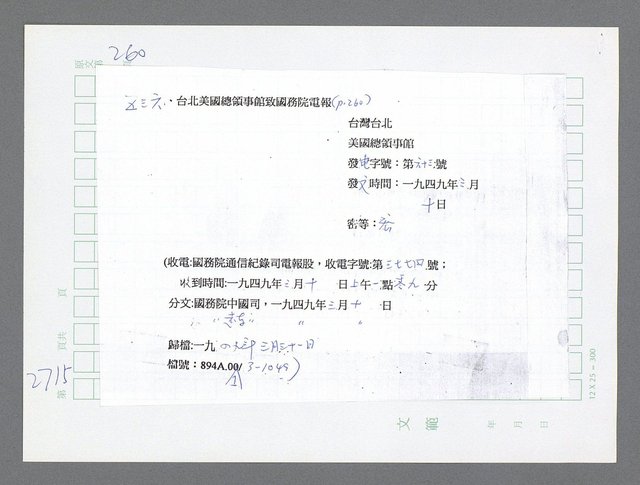 260
原文書 頁
五三六、台北美國總領事館致國務院電報(p.260)
台灣台北
美國總領事館
發電字號：第六十三號
發文時間：一九四九年三月
十日
密等：密
(收電:國務院通信紀錄司電報股，收電字號:第三七七四號；
收到時間:一九四九年三月十 日上午一點 分
分文:國務院中國司，一九四九年三月十 日
歸檔:一九四九年三月三十一日
檔號：894A.00/3-1049)
頁
頁共
2715
第
12 X 25 = 300
文 範
年 月 日